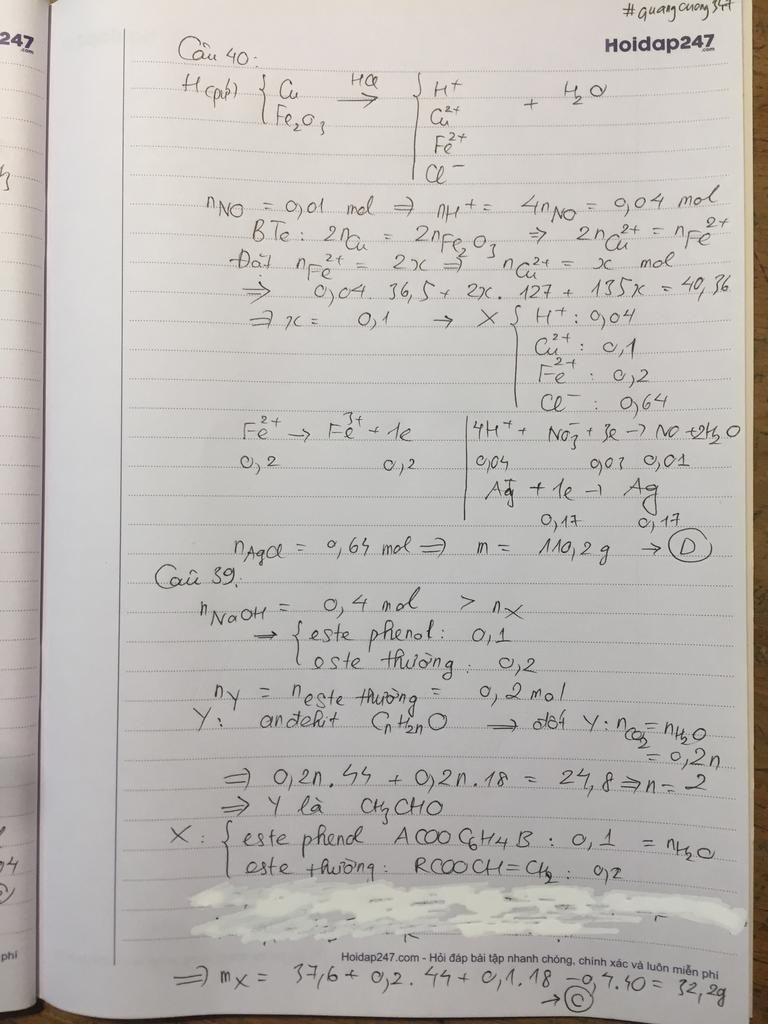 #quangcuong347
247
.com
Hoidap247
.com
Câu 40:
H(pứ) { Cu HCl→ { H⁺ + H₂O
Fe₂O₃ Cu²⁺
Fe²⁺
Cl⁻
nNO = 0,01 mol ⇒ nH⁺ = 4nNO = 0,04 mol
BTe: 2nCu = 2nFe₂O₃ ⇒ 2nCu²⁺ = nFe²⁺
Đặt nFe²⁺ = 2x ⇒ nCu²⁺ = x mol
⇒ 0,04. 36,5 + 2x. 127 + 135x = 40,36
⇒ x = 0,1 → X { H⁺: 0,04
Cu²⁺: 0,1
Fe²⁺: 0,2
Cl⁻: 0,64
Fe²⁺ → Fe³⁺ + 1e | 4H⁺ + NO₃⁻ + 3e → NO + 2H₂O
0,2 0,2 | 0,04 0,03 0,01
Ag⁺ + 1e → Ag
0,17 0,17
nAgCl = 0,64 mol ⇒ m = 110,2g → D
Câu 39:
nNaOH = 0,4 mol > nX
→ { este phenol: 0,1
este thường: 0,2
nY = neste thường = 0,2 mol
Y: anđehit CnH2nO → đốt Y: nCO₂ = nH₂O
= 0,2n
⇒ 0,2n. 44 + 0,2n. 18 = 24,8 ⇒ n = 2
⇒ Y là CH₃CHO
X: { este phenol ACOOC6H4B: 0,1 = nH₂O
este thường: RCOOCH=CH₂: 0,2
phí
Hoidap247.com - Hỏi đáp bài tập nhanh chóng, chính xác và luôn miễn phí
⇒ mX = 37,6 + 0,2. 44 + 0,1. 18 - 0,4.40 = 32,2g
→ C